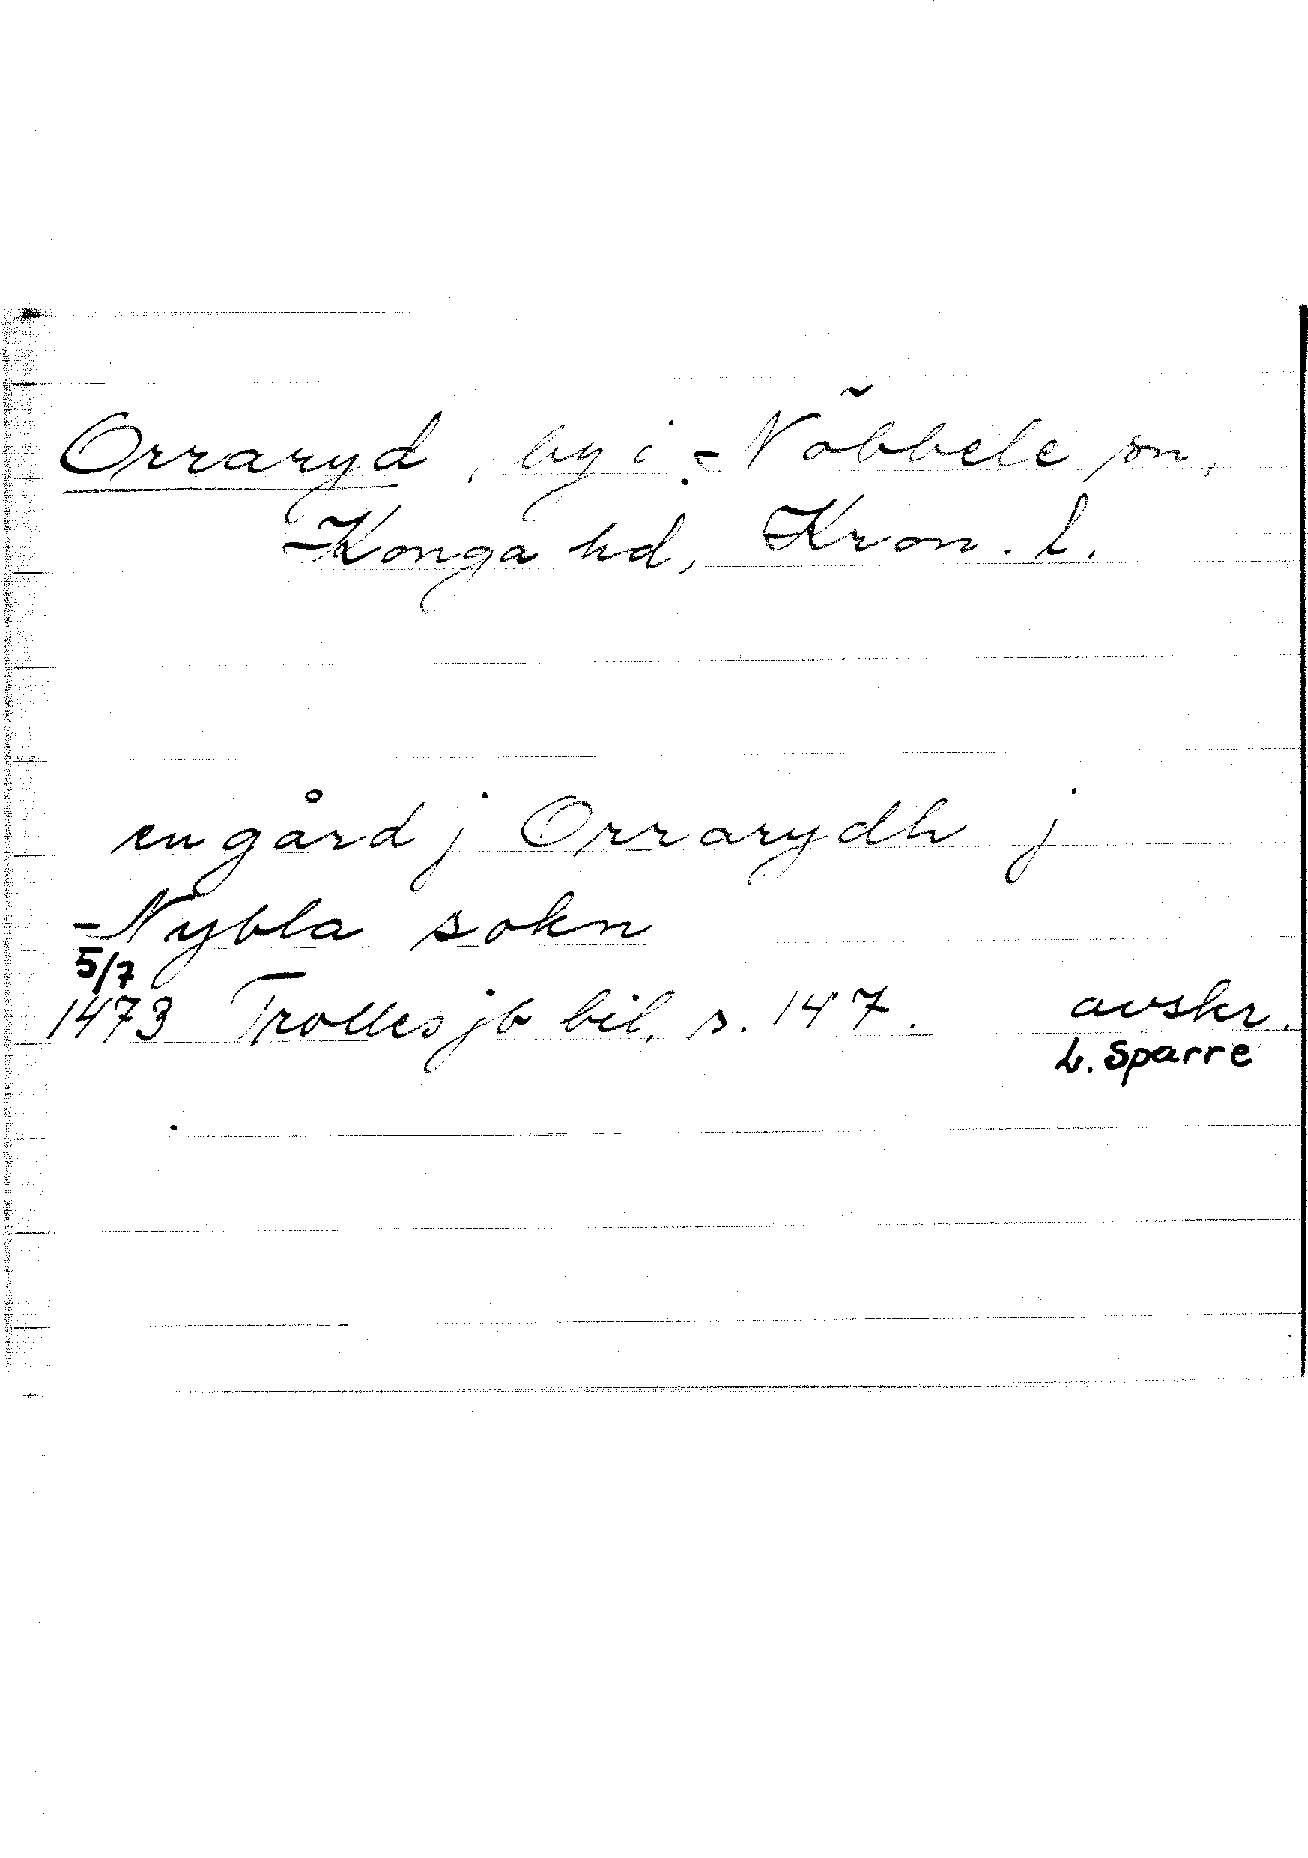 Orraryd, by i Nöbbele sn,
Konga hd, Kron. l.
en gård j Orrarydh j
Nybla sokn
5/7
1473 Trolles jb bil. s. 147. avskr.
L. Sparre